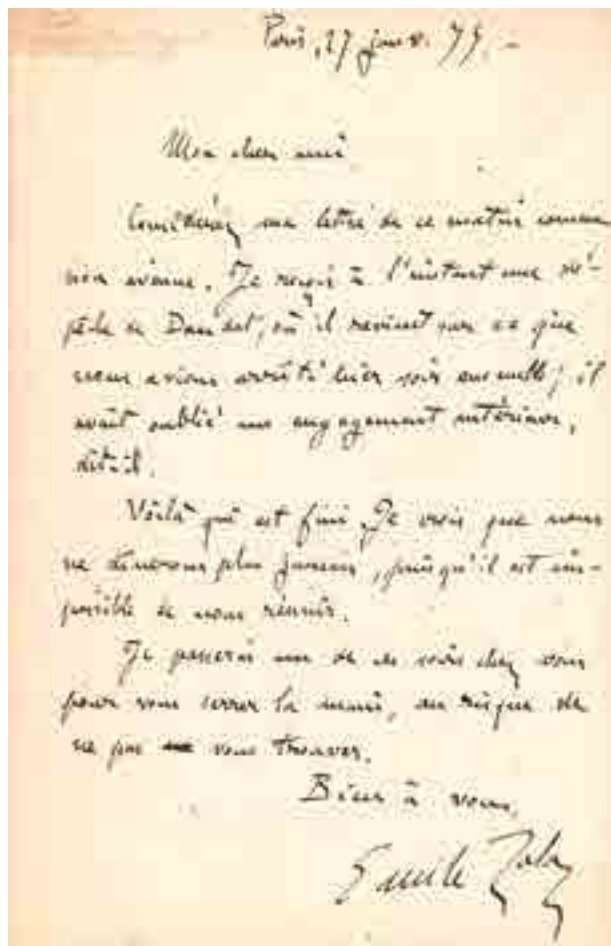 Paris, 27 janv. 79.-
Mon cher ami
Considérez ma lettre de ce matin comme
non avenue. Je reçois à l'instant une dé-
pêche de Daudet, où il revient sur ce que
nous avions arrêté hier soir ensemble; il
avait oublié un engagement antérieur,
dit-il.
Voilà qui est fini. Je crois que nous
ne dinerons plus jamais, puisqu'il est im-
possible de nous réunir.
Je passerai un de ces soirs chez vous
pour vous serrer la main, au risque de
ne pas vous trouver.
Bien à vous,
Emile Zola